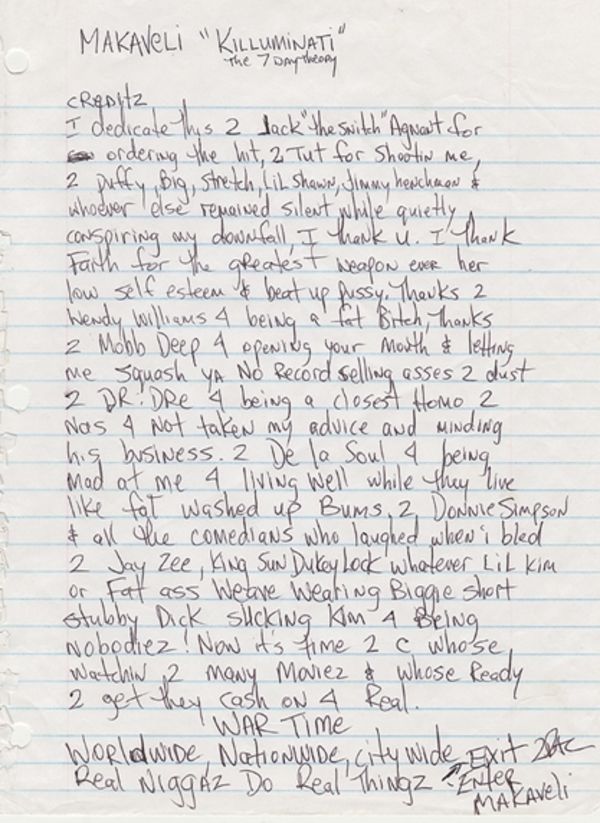 MAKAVELI "KILLUMINATI"
The 7 DAY Theory
CREDITZ
I dedicate this 2 Jack "the snitch" Agnant for
ordering the hit, 2 Tut for Shootin me,
2 puffy, Big, Stretch, LiL Shawn, Jimmy henchman &
whoever else remained silent while quietly
conspiring my downfall, I thank U. I thank
Faith for the greatest weapon ever her
low self esteem & beat up pussy. Thanks 2
Wendy Williams 4 being a fat Bitch, Thanks
2 Mobb Deep 4 opening your Mouth & letting
me squash ya No Record selling asses 2 dust
2 DR. DRE 4 being a closest Homo 2
Nas 4 Not taken my advice and minding
his business. 2 De la Soul 4 being
mad at me 4 living well while they live
like fat washed up Bums, 2 Donnie Simpson
& all the comedians who laughed when i bled
2 Jay Zee, King Sun Dukey Lock whatever LiL Kim
or Fat ass Weave Wearing Biggie short
stubby Dick sucking Kim 4 Being
Nobodiez! Now it's time 2 C whose
watchin 2 many Moviez & whose Ready
2 get they cash on 4 Real.
WAR TIME
Worldwide, Nationwide, city wide Exit 2PAC
Real Niggaz Do Real Thingz Enter
MAKAVELI